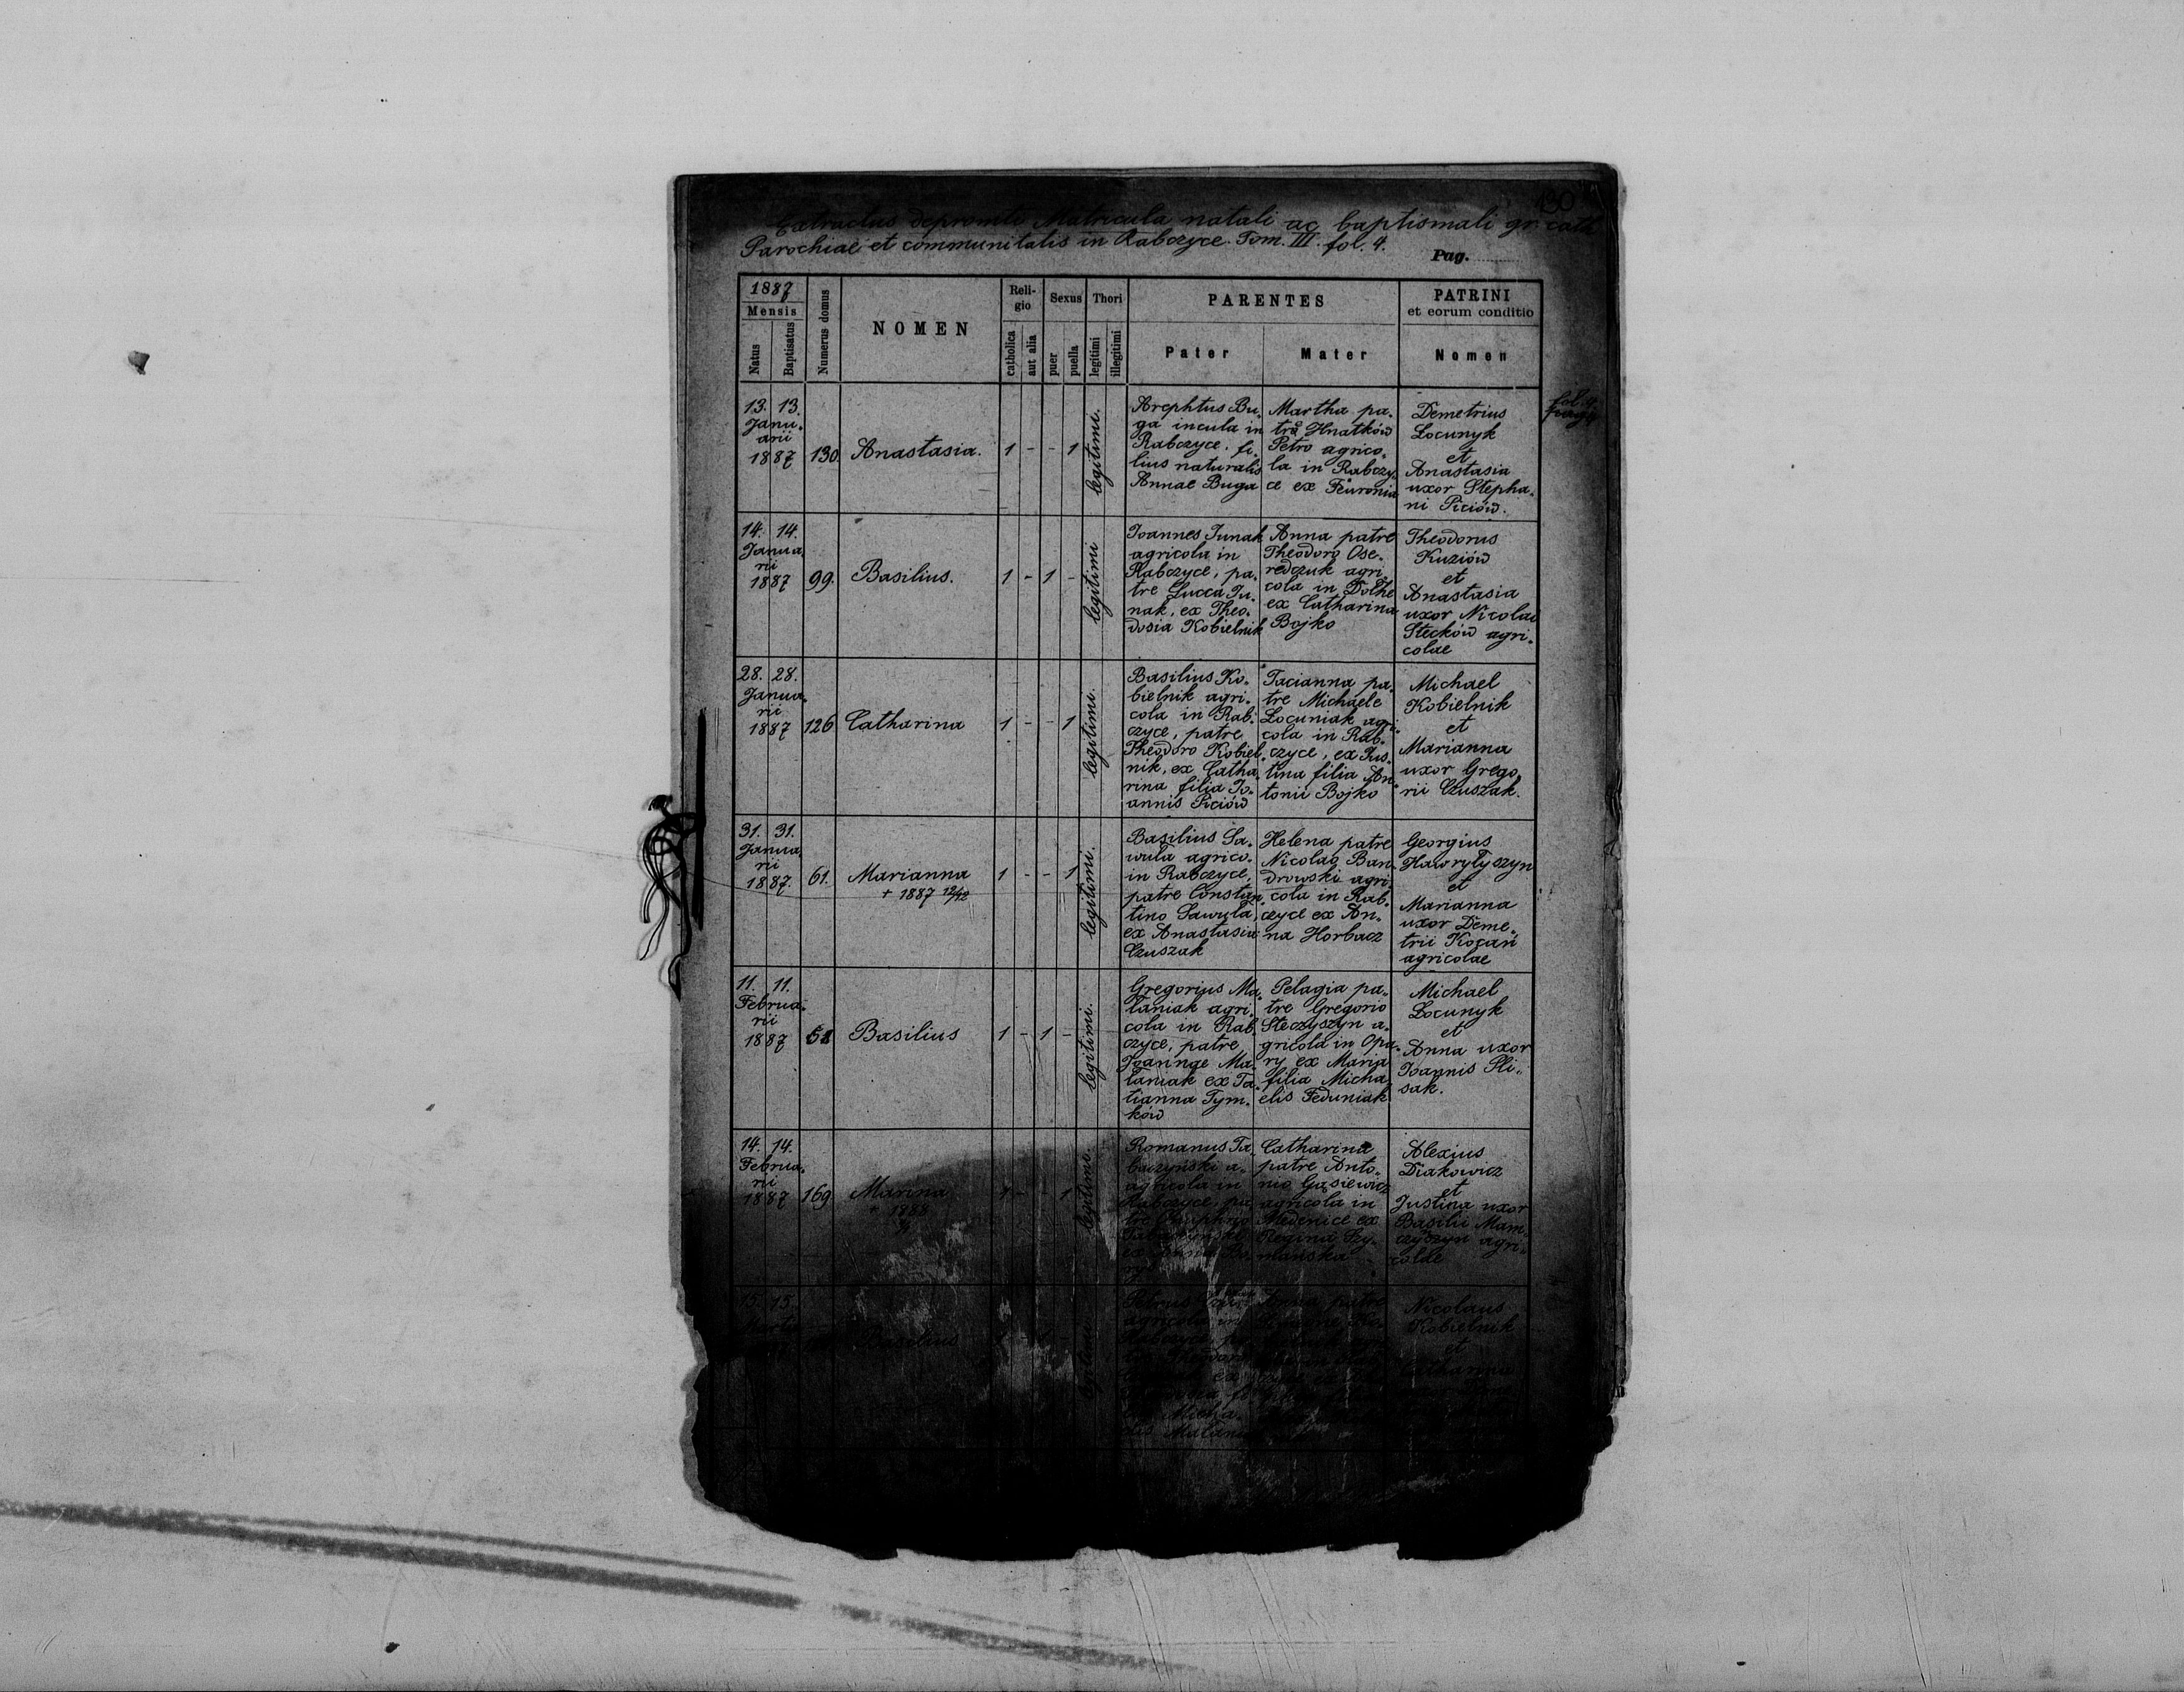 130
Extractus depromti Matricula natali ac baptismali gr. cath
Parochiae et communitatis in Rabczyce. Tom. III. fol. 4.
Pag.
1887
Mensis
Natus
Baptisatus
Numerus domus
NOMEN
Religio
catholica
aut alia
Sexus
puer
puella
Thori
legitimi
illegitimi
PARENTES
Pater
Mater
PATRINI
et eorum conditio
Nomen
13. 13.
Janu-
arii
1887
130.
Anastasia.
1 - - 1
legitimi.
Arephtus Bu-
ga incula in
Rabczyce. fi-
lius naturalis
Annae Buga
Martha pa-
Hnatków
Petro agrico-
la in Rabczy-
ce ex Feuronia
Demetrius
Łocunyk
et
Anastasia
uxor Stepha-
ni Piciów.
14. 14.
Janua
rii
1887
99.
Basilius.
1 - 1 -
legitimi
Joannes Junak
agricola in
Rabczyce, pa-
tre Lucca Ju-
nak, ex Theo-
dosia Kobielnik
Anna patre
Theodoro Ose-
redczuk agri
cola in Dołhe
ex Catharina
Bojko
Theodorus
Kuziów
et
Anastasia
uxor Nicolai
Steców agri-
colae
28. 28.
Janua-
rii
1887
126
Catharina
1 - - 1
legitimi.
Basilius Ko-
bielnik agri-
cola in Rab-
czyce, patre
Theodoro Kobiel
nik, ex Catha
rina filia Jo-
annis Piciów
Tacianna pa-
tre Michaele
Łocuniak agri-
cola in Rab-
czyce, ex Jus-
tina filia An-
tonii Bojko
Michael
Kobielnik
et
Marianna
uxor Grego-
rii Czuszak.
31. 31.
Janua
rii
1887.
61.
Marianna
+ 1887 12/12
1 - - 1
legitimi.
Basilius Sa-
wula agrico-
in Rabczyce,
patre Constan-
tino Sawula,
ex Anastasia
Czuszak
Helena patre
Nicolao Ban-
drowski agri-
cola in Rab-
czyce ex An-
na Horbacz
Georgius
Hawryłyszyn
et
Marianna
uxor Deme-
trii Kocan
agricolae
11. 11.
Februa-
rii
1887
51
Basilius
1 - 1 -
legitimi.
Gregorius Ma-
łaniak agri-
cola in Rab-
czyce, patre
Joanne Ma-
łaniak ex Ta-
tianna Tym-
ków
Pelagia pa-
tre Gregorio
Steczyszyn a-
gricola in Opa-
ry ex Maria
filia Micha
elis Feduniak
Michael
Łocunyk
et
Anna uxor
Joannis Pli-
sak.
14. 14.
Februa-
rii
1887
169
Marina
+ 1888
1 - 1
legitimi.
Romanus Ta
baczyński a-
agricola in
Rabczyce, pa
Catharina
patre Anto-
nio Gąsiewicz
agricola in
Medenice ex
Regina Szy-
mańska
Alexius
Diakowicz
et
Justina uxor
Basilii Mam
czyszyn agri-
colae
15. 15.
Basilius
Petrus
agricola in
Anna patre
Nicolaus
Kobielnik
et